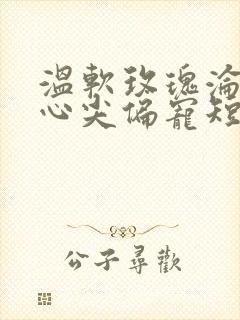 温軟玫瑰淪
心尖偏寵短
公子尋歡